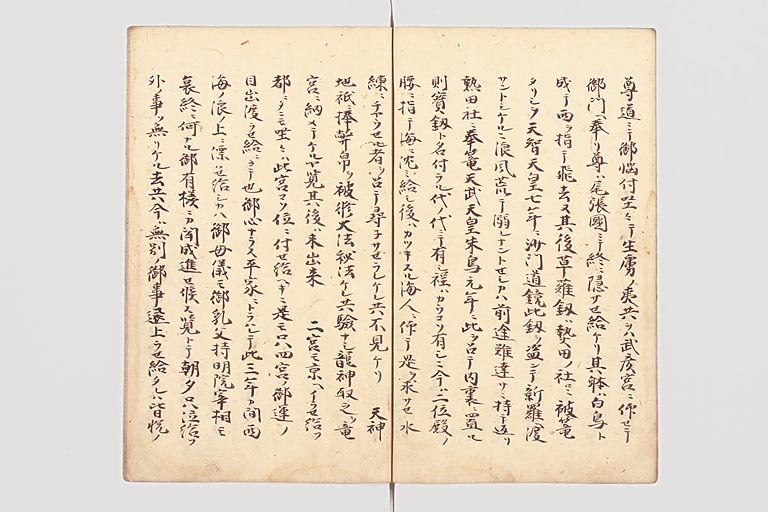 尊道ニテ御悩付坐シテ生虜ノ夷共ヲハ武彦宮ニ仰セテ
御門ヘ奉リ尊ハ尾張國ニテ終ニ隠サセ給ケリ其躰ハ白鳥ト
成テ西ヲ指テ飛去又其後草薙釼ハ熱田ノ社ニ被篭
タリシヲ天智天皇七年ニ沙門道鏡此釼ヲ盗ミテ新羅ヘ渡
サントシケルニ浪風荒テ溺ナントせシカハ前途難達サニ持テ返リ
熱田社ニ奉篭天武天皇朱鳥元年ニ此ヲ召テ内裏ニ置ル
則寳釼ト名付ラル代ノ代ニテ有シ程ハカウコソ有シニ今ハ二位殿ノ
腰ニ指テ海ニ沈ミ給シ後ハカツキスル海人ニ仰テ是ヲ求サセ水
練ニ チヤウせル者ヲ召テ尋子サせラレケレ共不見ケリ 天神
地祇ニ捧幣帛ヲ被修大法秘法ケレ共驗ナシ龍神取之ヲ竜
宮ニ納メテケルヤ覧其後ハ未出来 二宮モ京ヘイラせ給フ
都ニタニモ坐サハ此宮コソ位ニ付せ給ヘキニ是モ只四宮ノ御運ノ
目出渡ラせ給ニコソ也御心ナラス平家ニトラハレテ此三年カ間西
海ノ浪上ニ漂せ給シカハ御母儀モ御乳父持明院宰相モ
哀終ニ何ナル御有様ニカ聞成進せ候ハス覧トテ朝夕只泣給フ
外ノ事ソ無リケル去共今ハ無別ノ御事還上ラせ給タレハ皆悦ノ